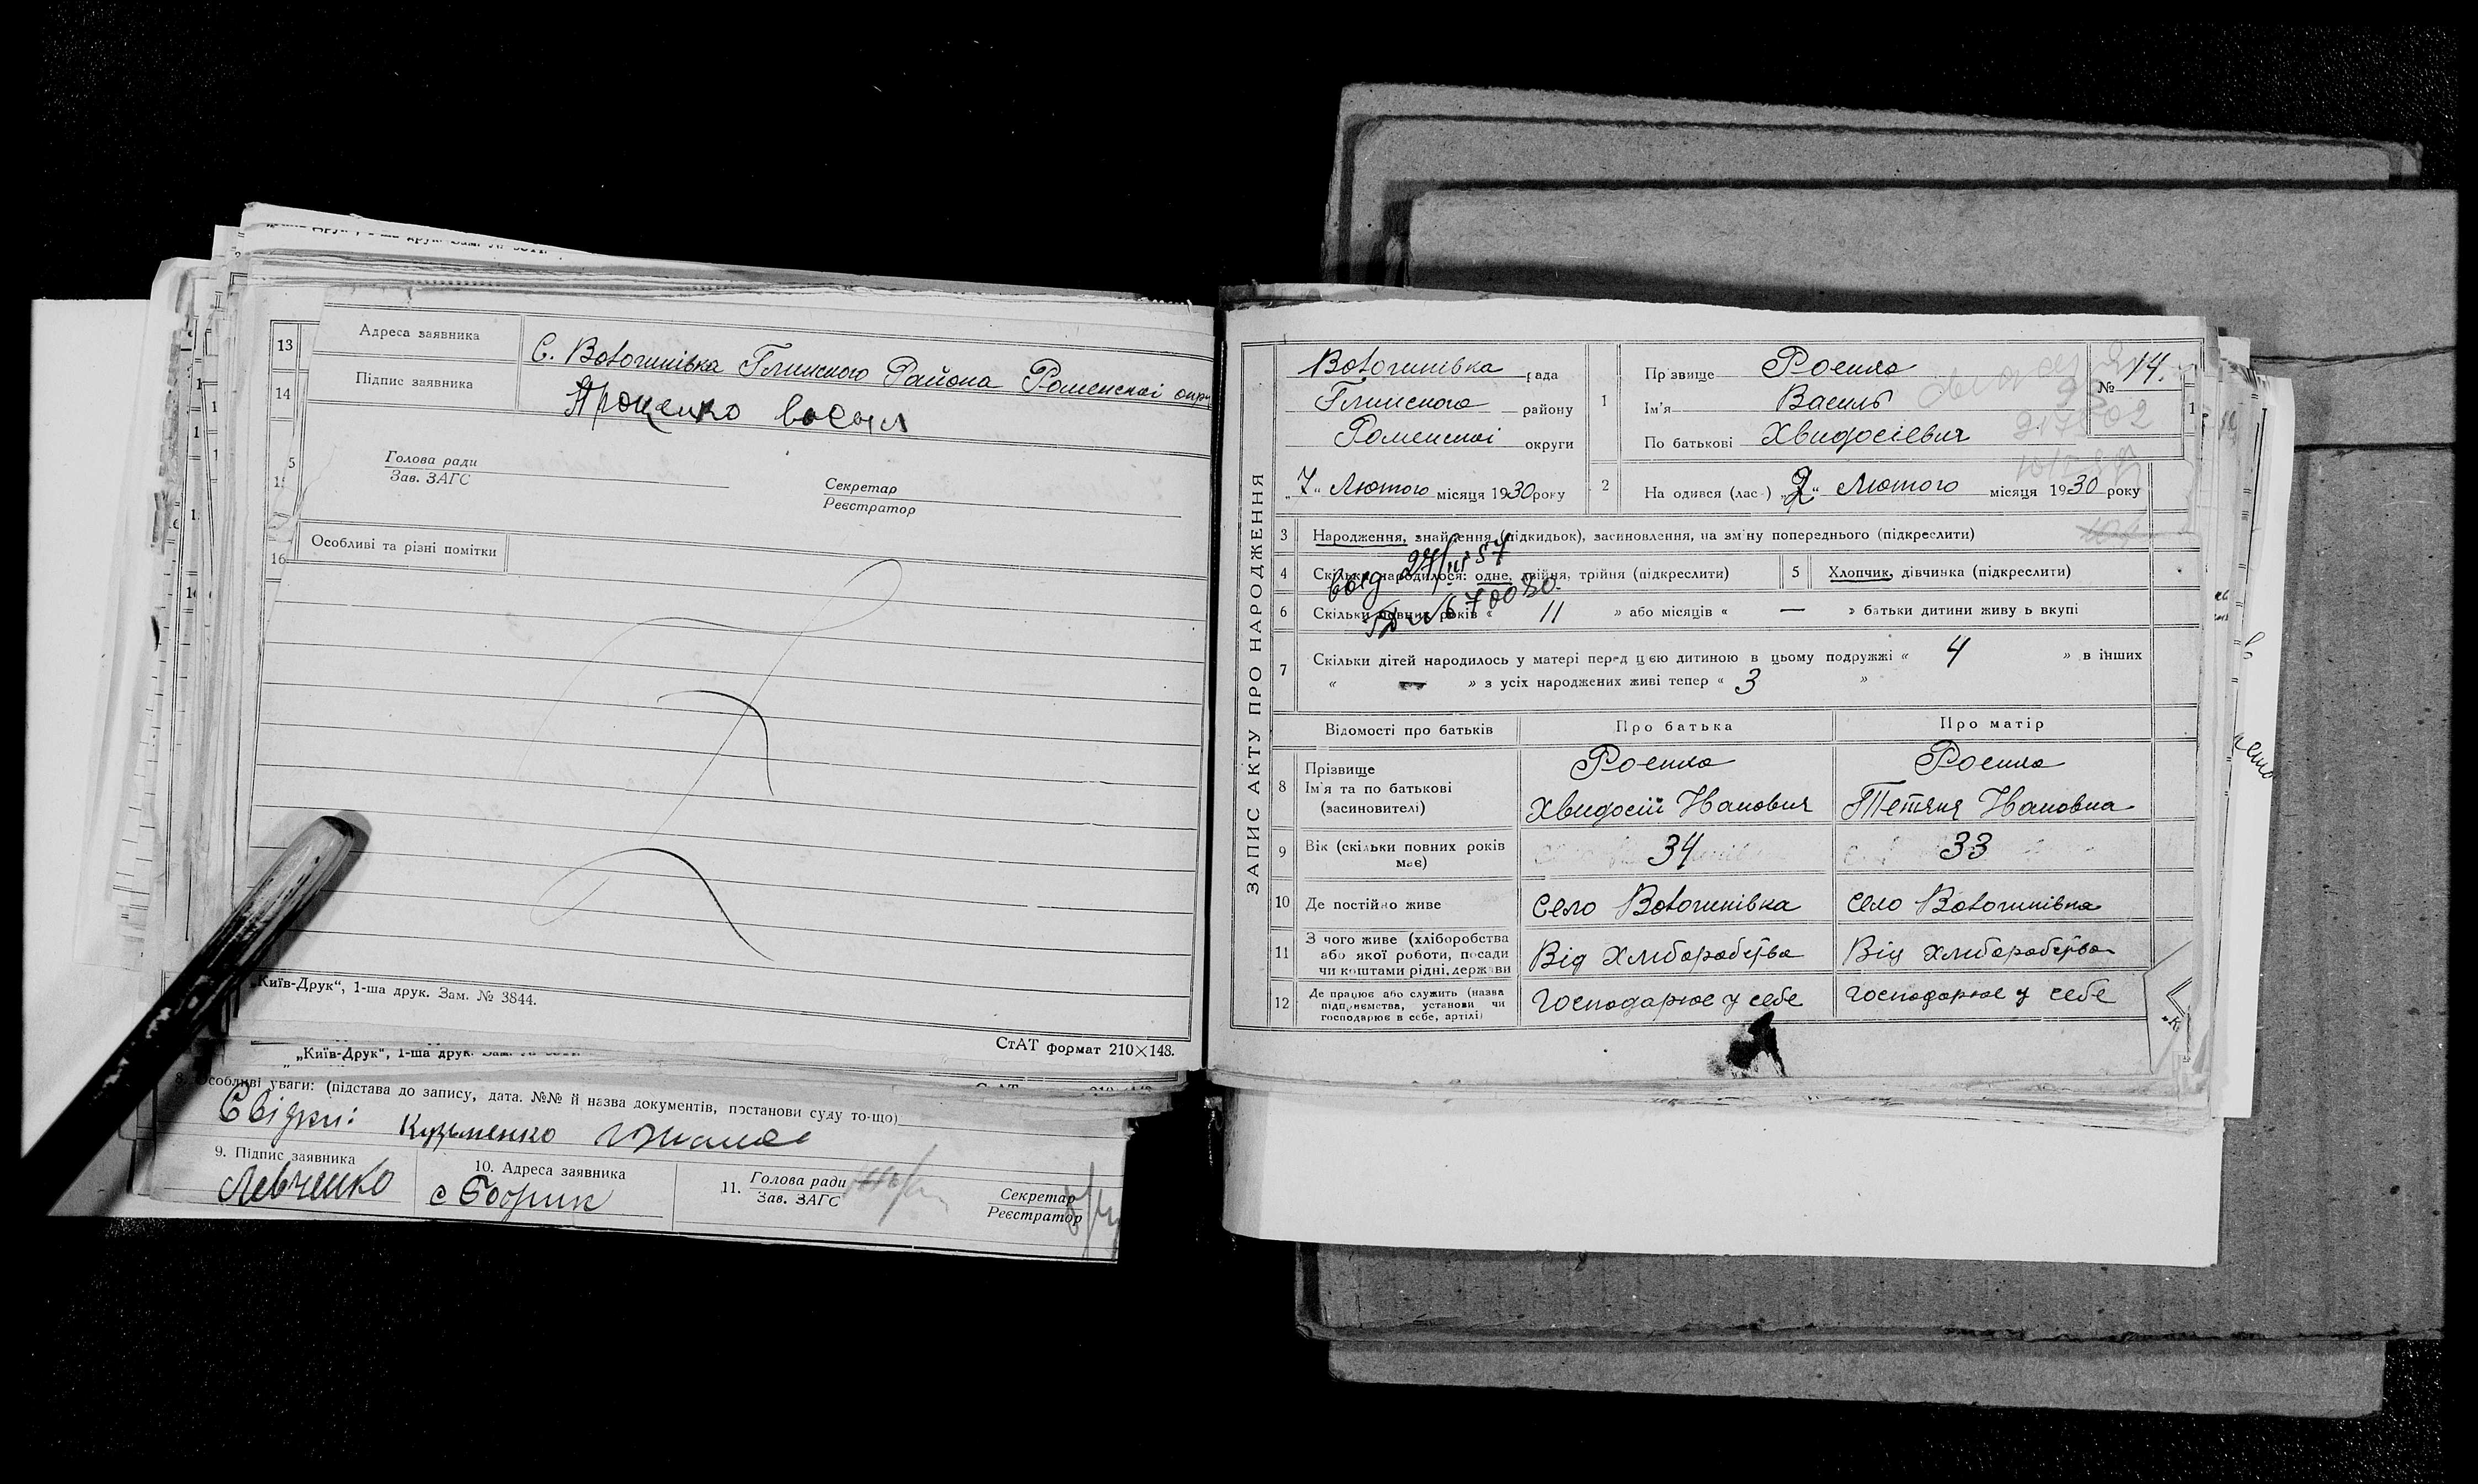 13 Адреса заявника С. Вовошинівка Глинского Района Роменскої окр
14 Підпис заявника Проценко Василь
Голова ради
Зав. ЗАГС
Секретар
Реєстратор
16 Особливі та різні помітки
„Київ-Друк“, 1-ша друк. Зам. № 3844.
СтАТ формат 210×148.
„Київ-Друк“, 1-ша друк.
8. Особливі уваги: (підстава до запису, дата. №№ й назва документів, постанови суду то-що)
Свідки: Кузьменко
9. Підпис заявника
Левченко
10. Адреса заявника
с
11. Голова ради
Зав. ЗАГС
Секретар
Реєстратор
ЗАПИС АКТУ ПРО НАРОДЖЕННЯ
Вовошинівка рада
Глинского району
Роменскої округи
„7“ Лютого місяця 1930 року
1 Прізвище Роенко
№ 14.
Ім'я Василь
По батькові Хвидосієвич
2 На одився (лас) „2“ Лютого місяця 1930 року
3 Народження, знайдення (підкидьок), засиновлення, на зміну попереднього (підкреслити)
4 Скільки народилося: одне, двійня, трійня (підкреслити)
5 Хлопчик, дівчинка (підкреслити)
27/III 57
№ 670080.
6 Скільки повних років « 11 » або місяців « — » батьки дитини живуть вкупі
7 Скільки дітей народилось у матері перед цією дитиною в цьому подружжі « 4 » в інших
« — » з усіх народжених живі тепер « 3 »
Відомості про батьків Про батька Про матір
8 Прізвище Роенко Роенко
Ім'я та по батькові Хвидосій Иванович Тетяна Ивановна
(засиновителі)
9 Вік (скільки повних років має) 34 33
10 Де постійно живе Село Вовошинівка Село Вовошинівка
11 З чого живе (хліборобства або якої роботи, посади чи коштами рідні, держави Від Хліборобства Від Хліборобства
12 Де працює або служить (назва підприємства, установи чи господарює в себе, артілі) Господарює у себе Господарює у себе